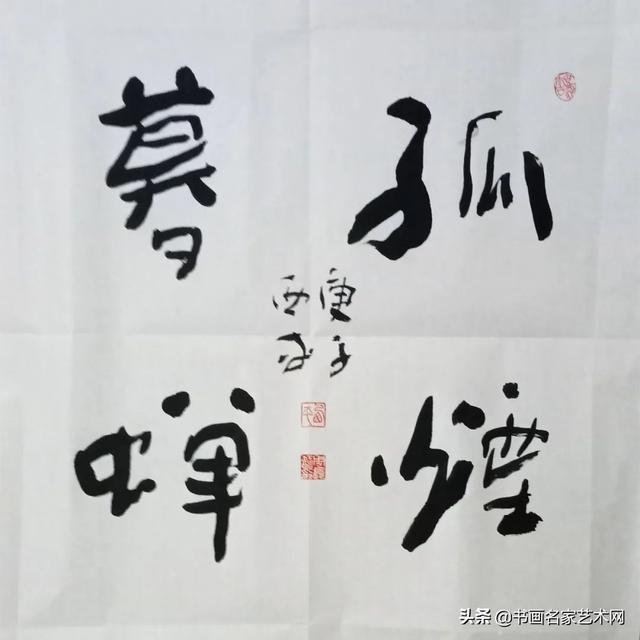 孤煙
暮蝉
庚子
西
头条 @书画名家艺术网